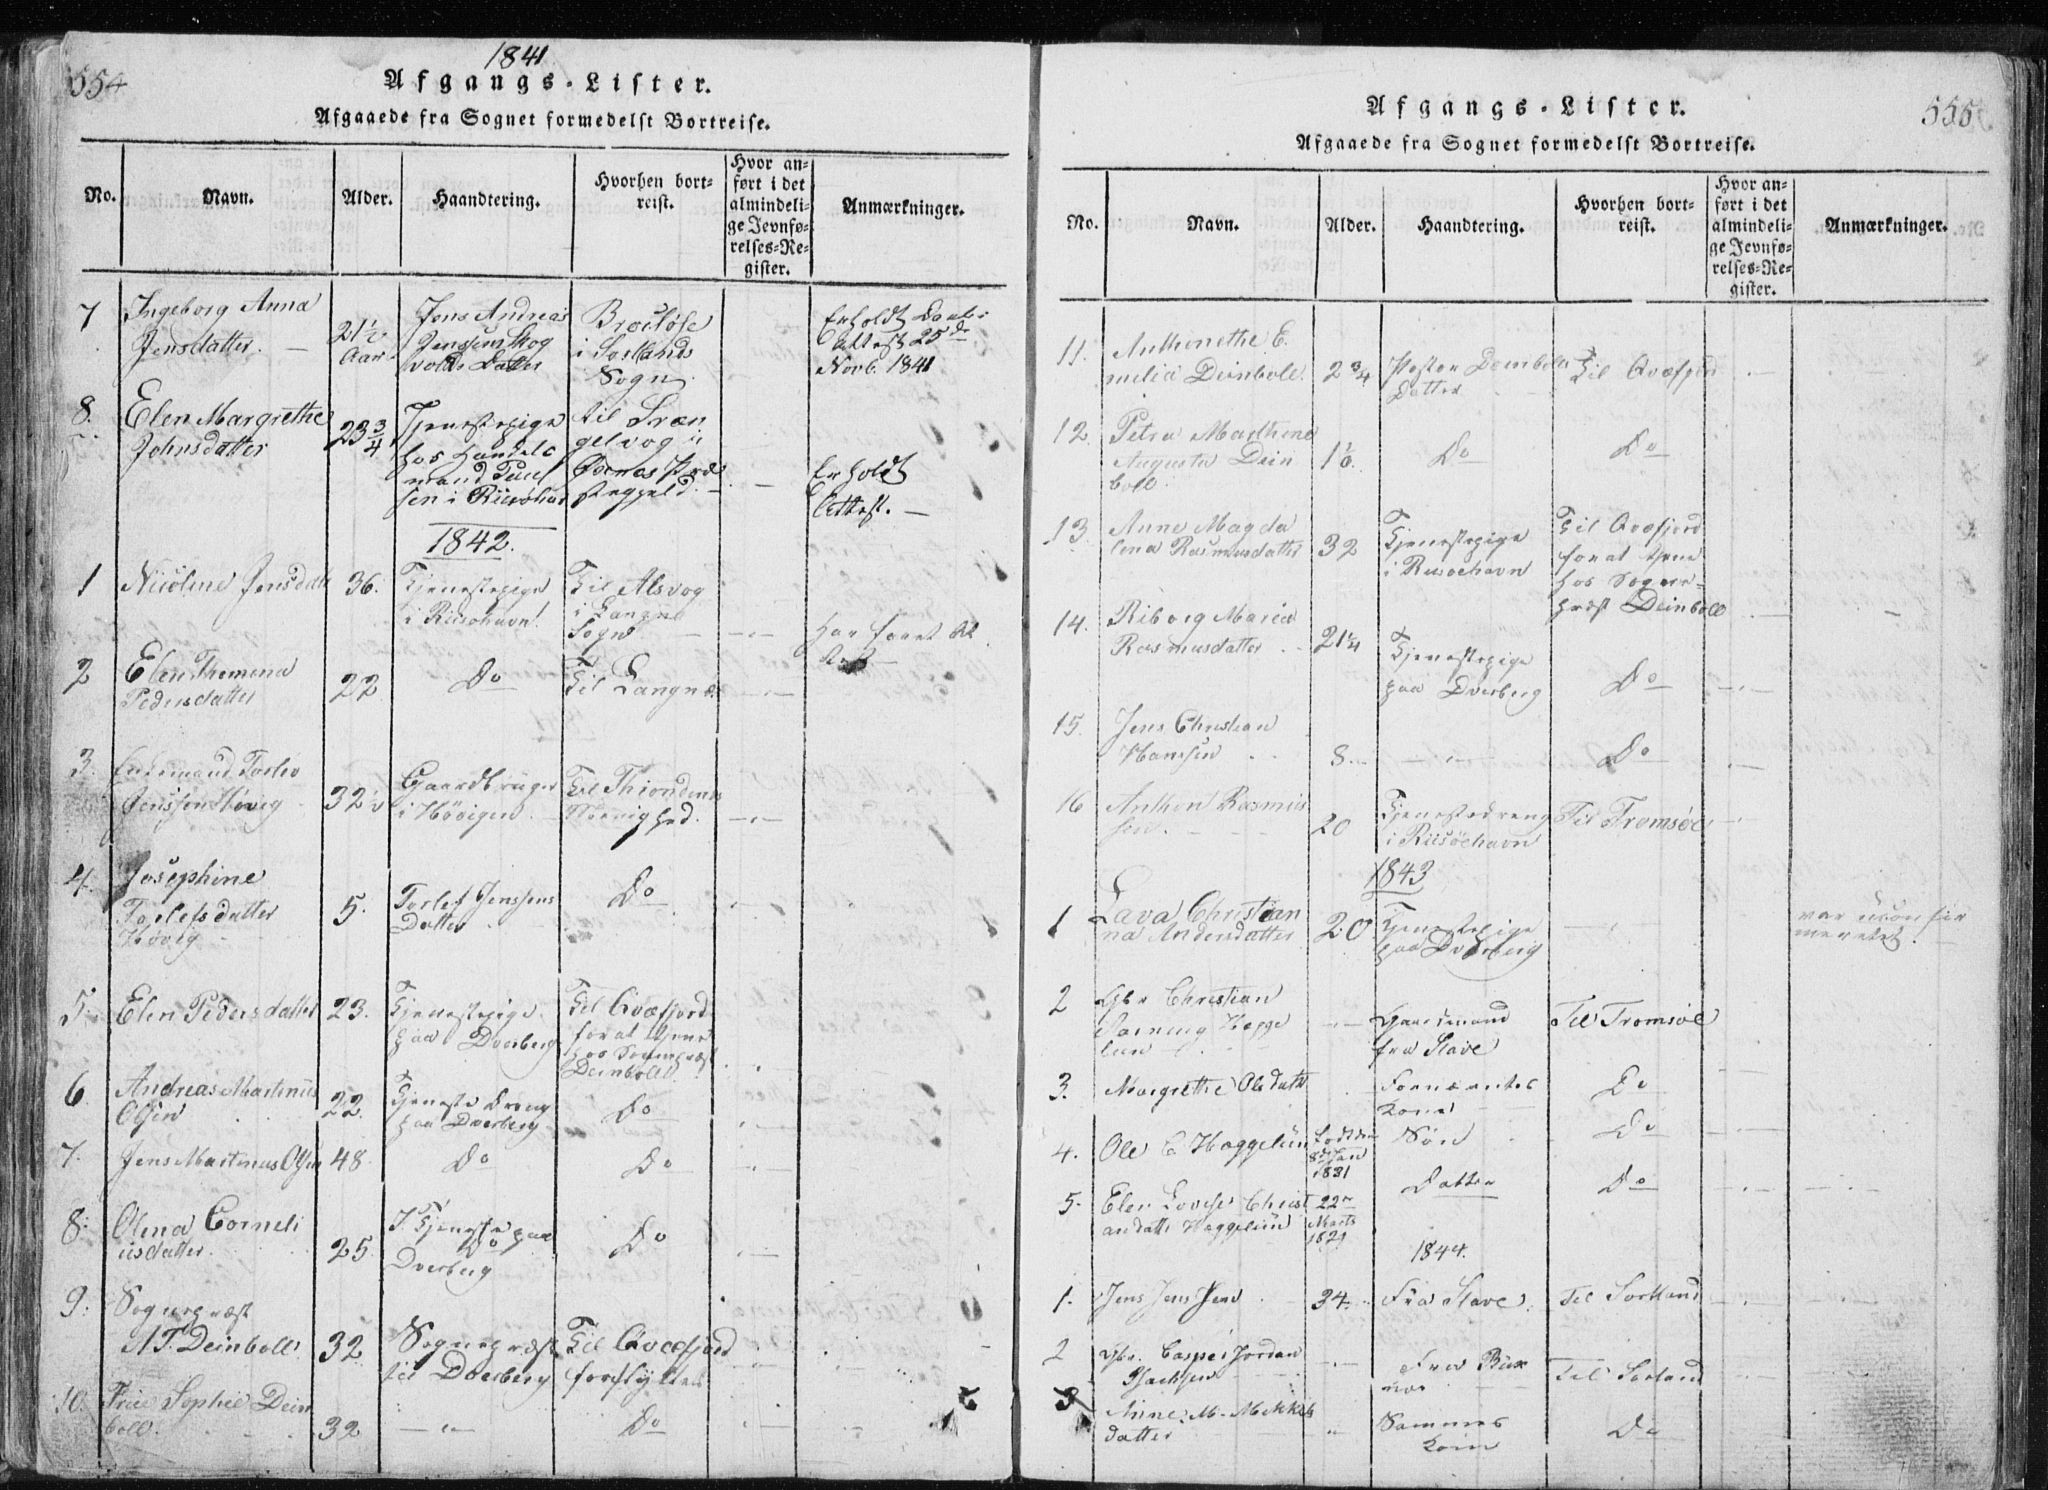 554
1841
Afgangs-Lister.
Afgaaede fra Sognet formedelst Bortreise.
No. Navn. Alder. Haandtering. Hvorhen bort-
reist. Hvor an-
ført i det
almindeli-
ge Jevnfø-
relses-Re-
gister. Anmærkninger.
7 Ingeborg Anna
Jensdatter. 21½
Aar Jens Andreas
Jenssens Skog
volds Datter
i Sortlands
Sogn
Erholdt
Attest 25de
Novb. 1841
8. Elen Margrethe
Johnsdatter 23¾ Tjenestepige
hos Handels
mand
sen i Risøehavn
til
gelvog i
Øxnes Præ
stegjeld.
Erholdt
Attest.
1842.
1 Nicoline Jensdatter 36. Tjenestepige
i Risøhavn
Til Alsvog
i Langnes
Sogn
Har faaet At
test
2 Elen Themina
Pedersdatter 22 Do Til Langnes
3. Torlev
Jenssen Høvig 32½ Gaardbruger
i Høvigen Til Throndenes
Menighed.
4. Josephine
Torlefsdatter
Høvig 5. Torlef Jenssens
Datter Do
5. Elen Pedersdatter 23. Tjenestepige
paa Dverberg Til Qvæfjord
for at tjene
hos Sognepræst
Deinboll
6. Andreas Martinus
Olsen 22. Tjeneste Dreng
paa Dverberg Do
7. Jens Martinus Olsen 48 Do Do
8. Olena Corneli
usdatter. 25. I Tjeneste paa
Do
Dverberg Do
9. Sognepræst
A T. Deinboll. 32 Sognepræst
til Dverberg Til Qvæfjord
forflyttet
10. Frue Sophie Dein
boll. 32 Do
555
Afgangs-Lister.
Afgaaede fra Sognet formedelst Bortreise.
No. Navn. Alder. Haandtering. Hvorhen bort-
reist. Hvor an-
ført i det
almindeli-
ge Jevnfø-
relses-Re-
gister. Anmærkninger.
11. Anthonethe E
melia Deinboll. 2¾ Pastor Deinbolls
Datter Til Qvæfjord
12. Petra Marthine
Augusta Dein
boll 1⅙. Do Do
13. Anne Magda
lena Rasmusdatter 32 Tjenestepige
i Risøehavn Til Qvæfjord
for at tjene
hos Sogne-
præst Deinboll
14. Riborg Maria
Rasmusdatter 21¼ Tjenestepige
paa Dverberg Do
15. Jens Christian
Hansen 8. Do
16 Anthon Rasmus
sen. 20 Tjenestedreng
i Risöehavn Til Tromsøe
1843
1 Lava Christian
na Andersdatter 20 Tjenestepige
paa Dverberg var ukonfir
meret
2 Christian
Hegge
lun Gaardmand
fra Stave Til Tromsøe
3. Margrethe Olsdatt
Kone Do
4. Ole C Heggelun født den
8de Jan
1831 Søn Do
5. Elen Lovise Christ
andatt Heggelun 22de
Marts
1829 Datter Do
1844.
1. Jens Jens Jens 34. Fra Stave. Til Sortland
2 Casper Jordan
Isachsen Fra
nes Til Sortland
3 Anne M. Mikkels
datter Sammes
Kone Do